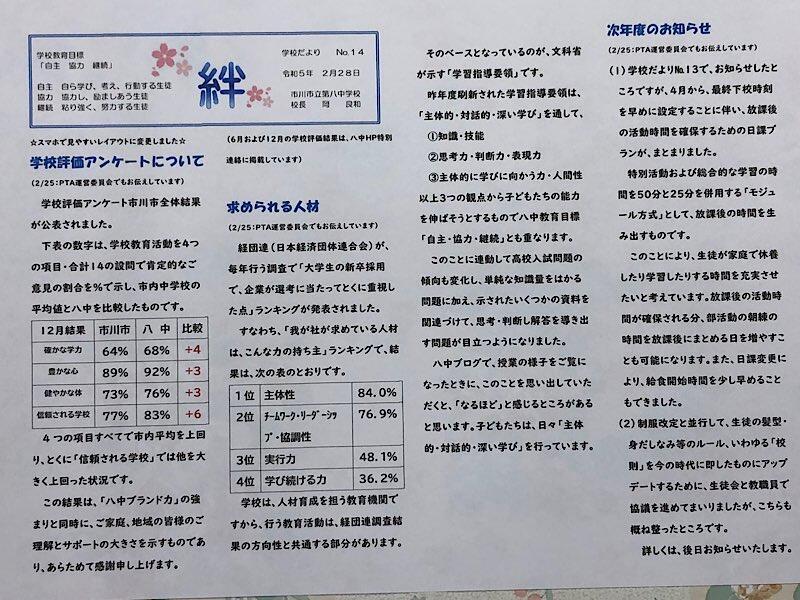 学校教育目標
「自主 協力 継続」
自主 自ら学び、考え、行動する生徒
協力 協力し、励ましあう生徒
継続 粘り強く、努力する生徒
絆
学校だより No.14
令和5年 2月28日
市川市立第八中学校
校長 岡 良和
☆スマホで見やすいレイアウトに変更しました☆
学校評価アンケートについて
(2/25:PTA運営委員会でもお伝えしています)
学校評価アンケート市川市全体結果
が公表されました。
下表の数字は、学校教育活動を4つ
の項目・合計14の設問で肯定的なご
意見の割合を%で示し、市内中学校の
平均値と八中を比較したものです。
12月結果 市川市 八 中 比較
確かな学力 64% 68% +4
豊かな心 89% 92% +3
健やかな体 73% 76% +3
信頼される学校 77% 83% +6
4つの項目すべてで市内平均を上回
り、とくに「信頼される学校」では他を大
きく上回った状況です。
この結果は、「八中ブランド力」の強
まりと同時に、ご家庭、地域の皆様のご
理解とサポートの大きさを示すものであ
り、あらためて感謝申し上げます。
(6月および12月の学校評価結果は、八中HP特別
連絡に掲載しています)
求められる人材
(2/25:PTA運営委員会でもお伝えしています)
経団連(日本経済団体連合会)が、
毎年行う調査で「大学生の新卒採用
で、企業が選考に当たってとくに重視し
た点」ランキングが発表されました。
すなわち、「我が社が求めている人材
は、こんな力の持ち主」ランキングで、結
果は、次の表のとおりです。
1位 主体性 84.0%
2位 チームワーク・リーダーシッ 76.9%
プ・協調性
3位 実行力 48.1%
4位 学び続ける力 36.2%
学校は、人材育成を担う教育機関で
すから、行う教育活動は、経団連調査結
果の方向性と共通する部分があります。
そのベースとなっているのが、文科省
が示す「学習指導要領」です。
昨年度刷新された学習指導要領は、
「主体的・対話的・深い学び」を通して、
①知識・技能
②思考力・判断力・表現力
③主体的に学びに向かう力・人間性
以上3つの観点から子どもたちの能力
を伸ばそうとするもので八中教育目標
「自主・協力・継続」とも重なります。
このことに連動して高校入試問題の
傾向も変化し、単純な知識量をはかる
問題に加え、示されたいくつかの資料を
関連づけて、思考・判断し解答を導き出
す問題が目立つようになりました。
八中ブログで、授業の様子をご覧に
なったときに、このことを思い出していた
だくと、「なるほど」と感じるところがある
と思います。子どもたちは、日々「主体
的・対話的・深い学び」を行っています。
次年度のお知らせ
(2/25:PTA運営委員会でもお伝えしています)
(1)学校だよりNo.13で、お知らせしたと
ころですが、4月から、最終下校時刻
を早めに設定することに伴い、放課後
の活動時間を確保するための日課プ
ランが、まとまりました。
特別活動および総合的な学習の時
間を50分と25分を併用する「モジュ
ール方式」として、放課後の時間を生
み出すものです。
このことにより、生徒が家庭で休養
したり学習したりする時間を充実させ
たいと考えています。放課後の活動時
間が確保される分、部活動の朝練の
時間を放課後にまとめる日を増やすこ
とも可能になります。また、日課変更に
より、給食開始時間を少し早めること
もできました。
(2)制服改定と並行して、生徒の髪型・
身だしなみ等のルール、いわゆる「校
則」を今の時代に即したものにアップ
デートするために、生徒会と教職員で
協議を進めてまいりましたが、こちらも
概ね整ったところです。
詳しくは、後日お知らせいたします。